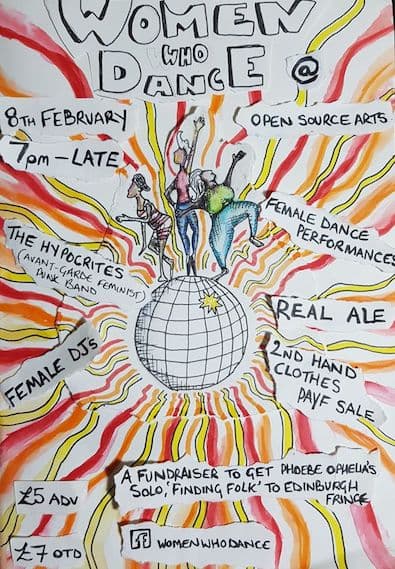 WOMEN
WHO
DANCE @
8TH FEBRUARY
OPEN SOURCE ARTS
7pm - LATE
FEMALE DANCE
PERFORMANCES
THE HYPOCRITES
(AVANT-GARDE FEMINIST)
PUNK BAND
REAL ALE
FEMALE DJs
2ND HAND
CLOTHES
PAYF SALE
A FUNDRAISER TO GET PHOEBE OPHELIA'S
SOLO, 'FINDING FOLK' TO EDINBURGH
FRINGE
£5 ADV
£7 OTD
WOMENWHODANCE